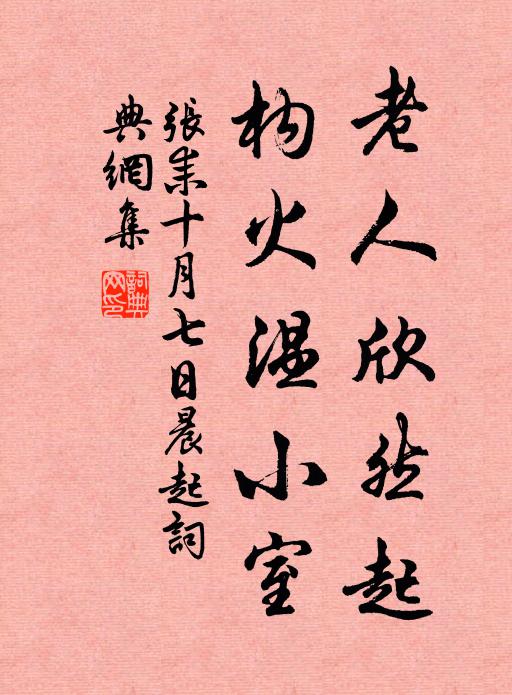 老人欣然起
构火温小室
張耒十月七日晨起詞
典網集
詞典网印